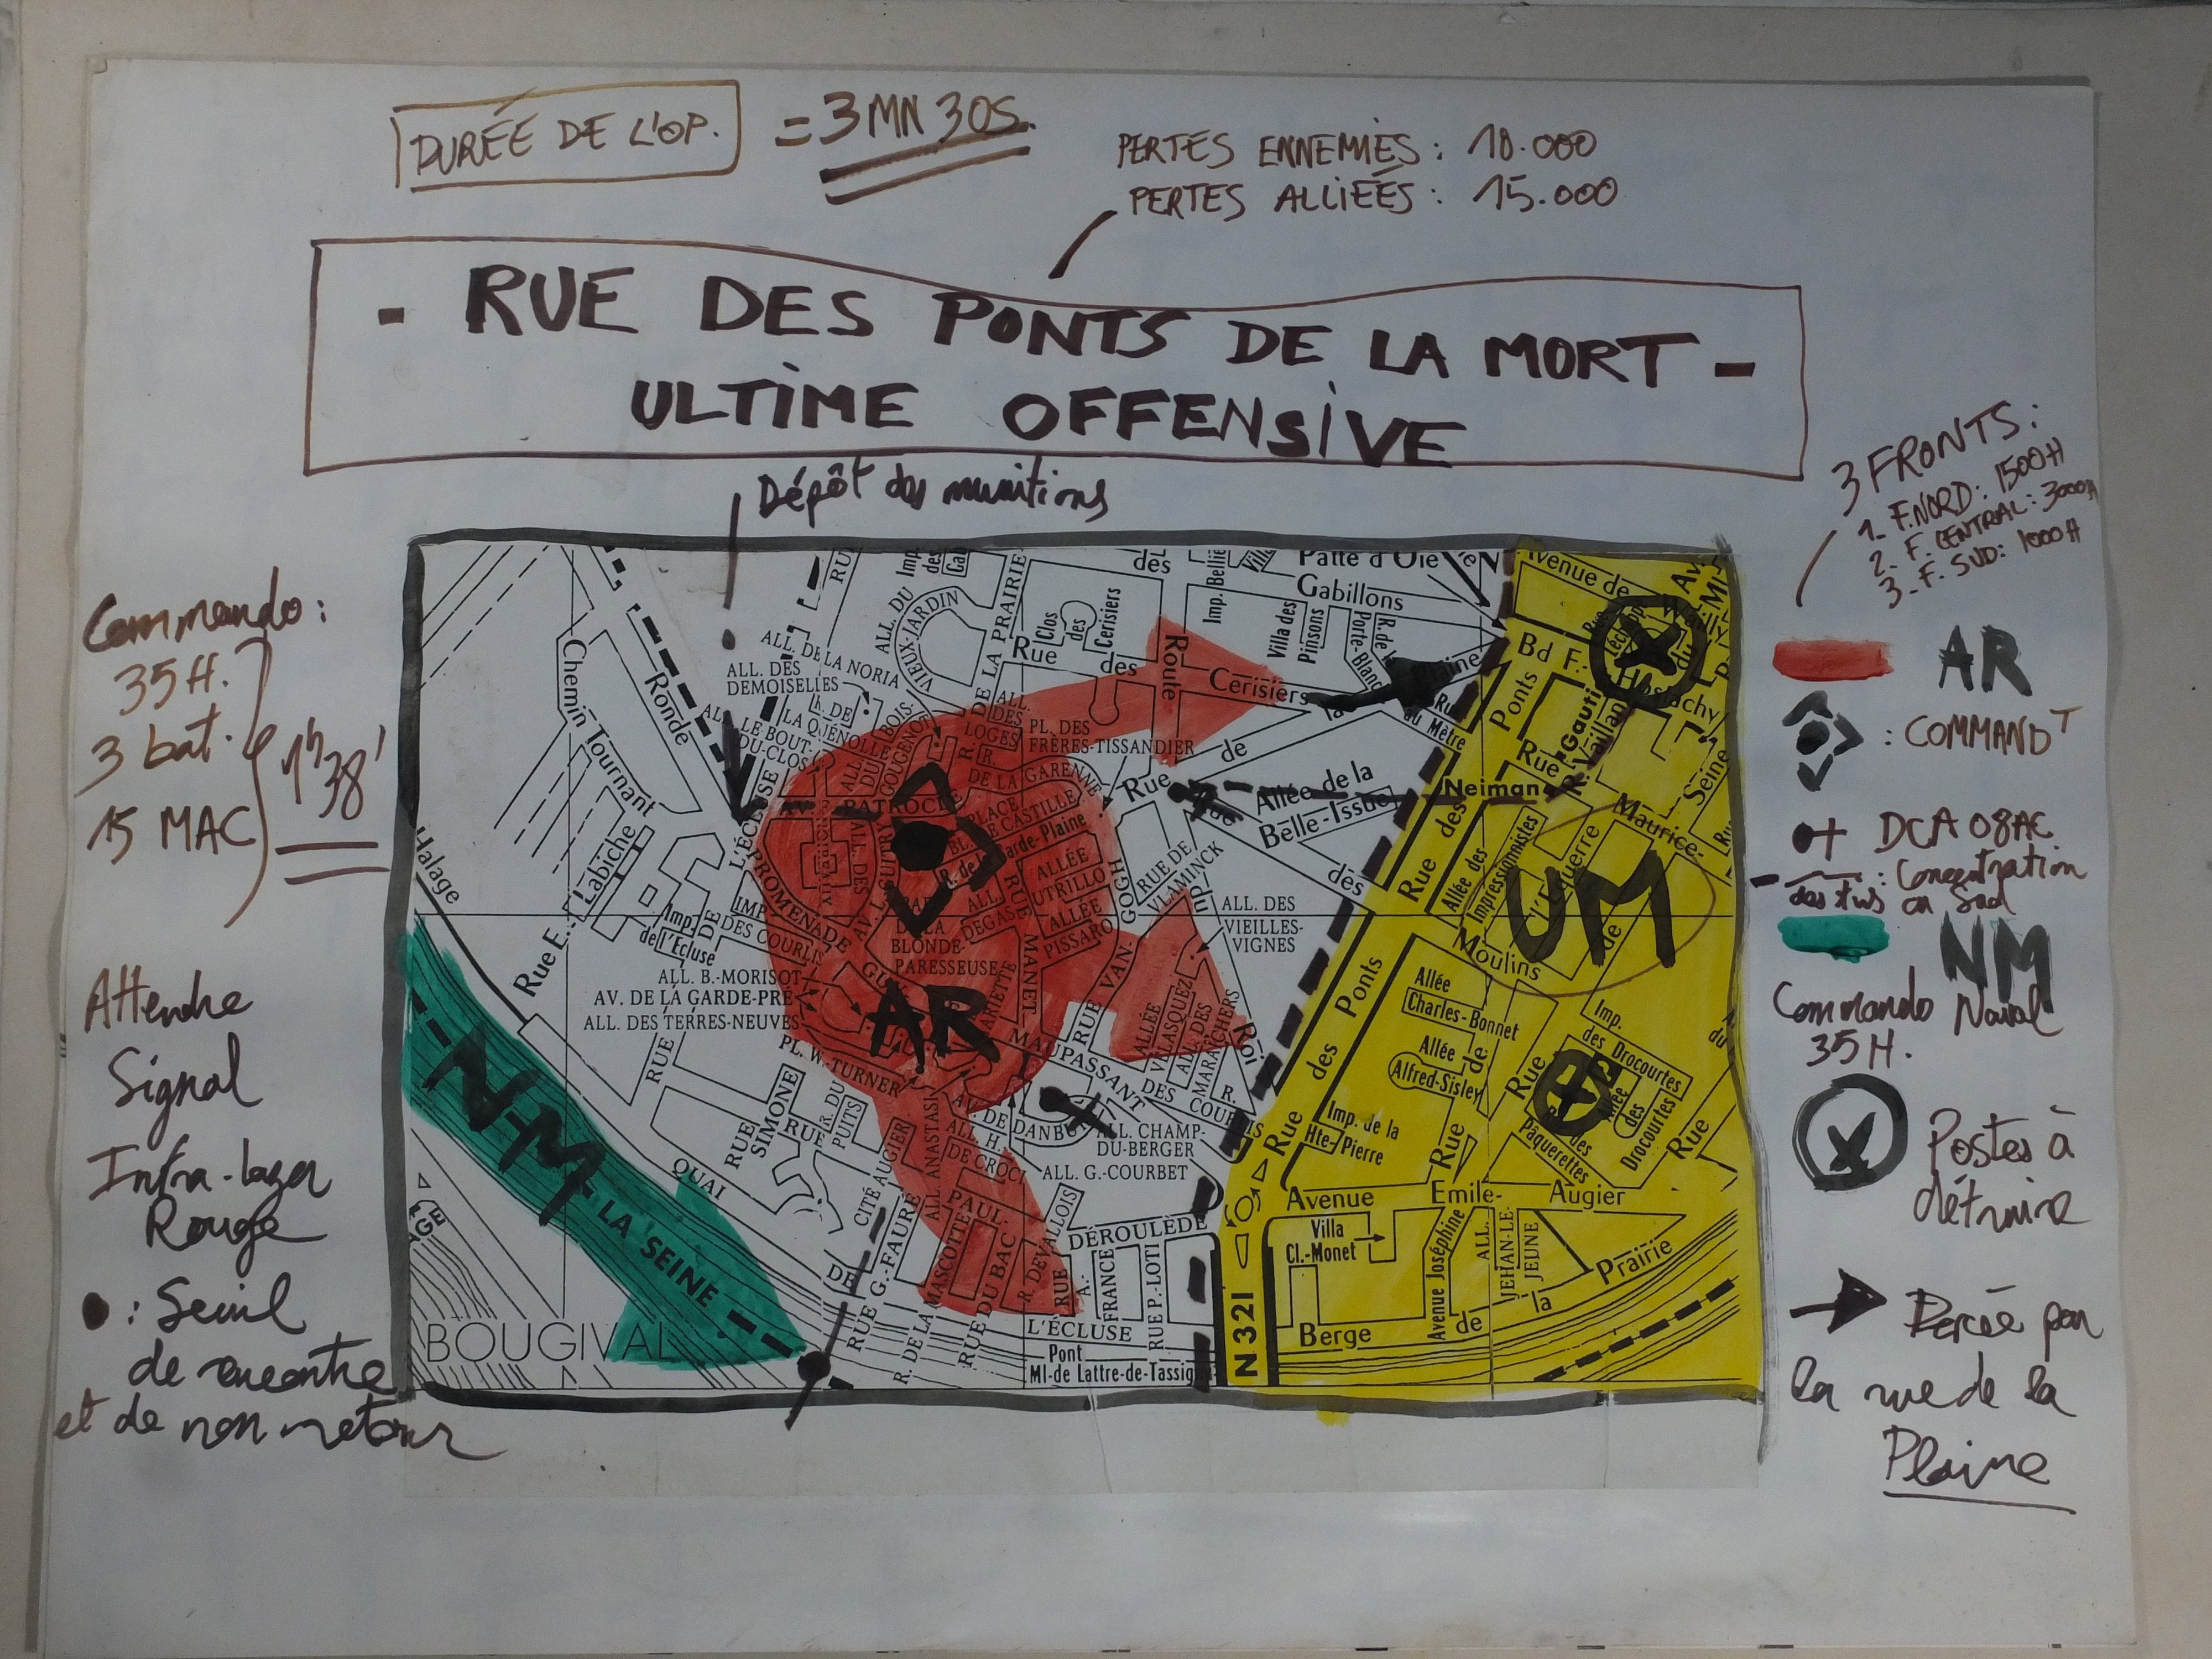 DURÉE DE L'OP. = 3 MN 30S.
PERTES ENNEMIES : 10.000
PERTES ALLIÉES : 15.000
- RUE DES PONTS DE LA MORT -
ULTIME OFFENSIVE
Dépôt des munitions
3 FRONTS :
1_ F. NORD : 1500 H
2_ F. CENTRAL : 3000 H
3_ F. SUD : 1000 H
Commando :
35 H.
3 bat.
15 MAC
1h38'
Attendre
Signal
Infra-lazer
Rouge
● : Seuil
de rencontre
et de non retour
AR
: COMMANDT
DCA 08AC
: Concentration
des tirs en Sud
NM
Commando Naval
35 H.
Postes à
détruire
Percée par
la rue de la
Plaine
des
Patte d'Oie
Gabillons
Avenue de
Imp.
des
Gab
RUE
Clos
des
Cerisiers
Imp. Bellie
Villa des
Pinsons
Porte-Blanc
Rue des Cerisiers
Route
ALL. DU
VIEUX-JARDIN
DE LA PRAIRIE
ALL. DE LA NORIA
ALL. DES
DEMOISELLES
LA QUENOLLE
LE-BOUT-
DU-CLOS
BOIS-
GOUGENOT
ALL.
DES
LOGES
PL. DES
FRÈRES-TISSANDIER
DE LA GARENNE
Chemin Tournant
Ronde
Labiche
Halage
Rue E.
L'ÉCLUSE
PROMENADE
AV.
PATROCLE
PLACE
CASTILLE
arde-Plaine
ALLÉE
UTRILLO
ALLÉE
PISSARO
ALL.
DEGAS
RUE
MANET
RUE VAN-
GOGH
RUE DE
VLAMINCK
Rue de la Plaine
au Mètre
Allée de la
Belle-Issue
Neiman
Bd F.
Hostachy
Rue des Ponts
Gauti
R. Vaillant
Maurice-
Seine
Allée des
Impressionnistes
l'Équerre
UM
Moulins
Imp.
de l'Écluse
IMP.
DES COURLIS
DE LA
BLONDE-
PARESSEUSE
ALL. DES
VIEILLES-
VIGNES
ALL. B.-MORISOT
AV. DE LA GARDE-PRÉ
ALL. DES TERRES-NEUVES
PL. W. TURNER
AR
MAUPASSANT
ALLÉE
VELASQUEZ
ALL. DES
MARAÎCHERS
du Roi
R.
DES COURLIS
Rue des Ponts
Allée
Charles-Bonnet
Allée
Alfred-Sisley
Imp.
des Drocourtes
Allée
des
Drocourtes
des
Pâquerettes
Rue
Imp. de la
Hte-Pierre
RUE
SIMONE
RUE
R. DU
PUITS
CITÉ AUGIER
QUAI
DE
L'ÉCLUSE
ALL. ANASTASI
AV. DE DANBU
ALL. H.
DE CROCI
ALL. CHAMP-
DU-BERGER
ALL. G.-COURBET
PAUL-
DÉROULÈDE
RUE G.-FAURÉ
R. DE LA MASCOTTE
RUE DU BAC
R. DEVALLOIS
RUE
A.-
FRANCE
RUE P.-LOTI
Avenue Emile-Augier
Villa
Cl.-Monet
Avenue Joséphine
ALL.
JEHAN-LE-
JEUNE
Berge de la Prairie
N 321
Pont
Ml-de Lattre-de-Tassig
NM
LA SEINE
BOUGIVAL